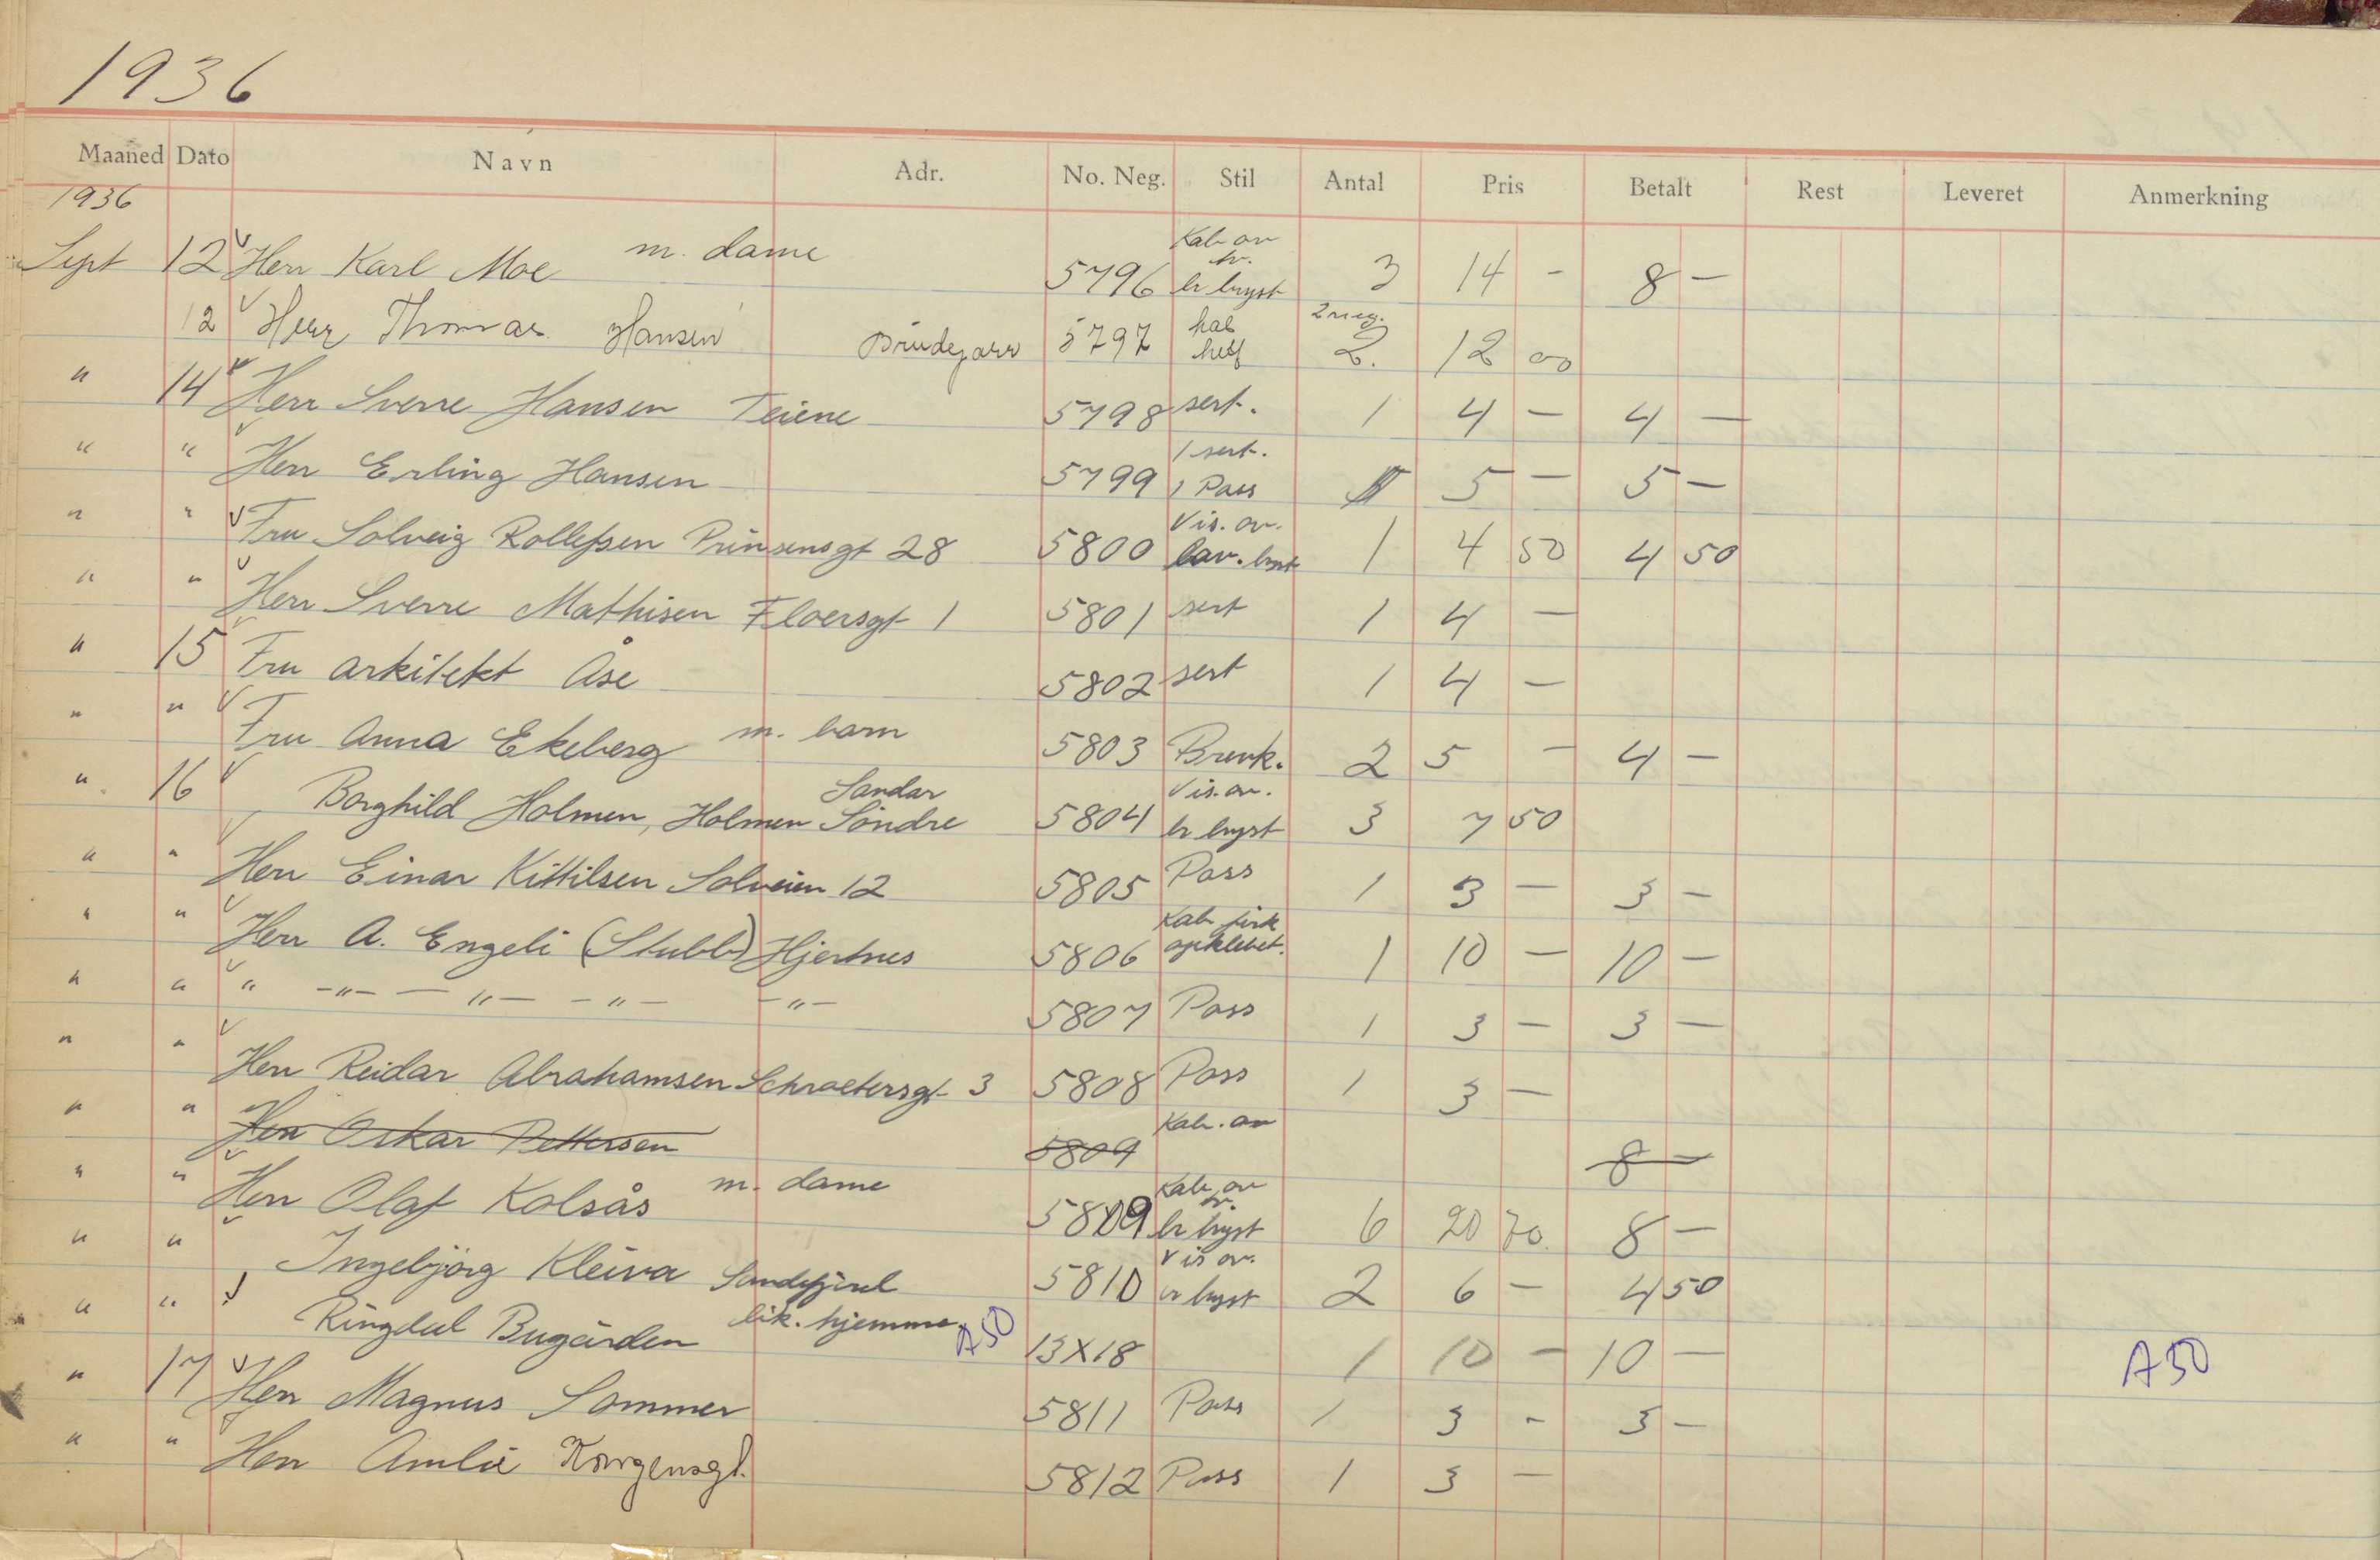 1936
Maaned Dato Navn Adr. No. Neg. Stil Antal Pris Betalt Rest Leveret Anmerkning
1936
Sept 12 Herr Karl Moe m. dame 5796 Kab. av br. br bryst 3 14 - 8 -
12 Herr Thomas Hansen Brudepar 5797 kab helf 2 neg. 2. 12 00
" 14 Herr Sverre Hansen Teiene 5798 sert. 1 4 - 4 -
" " Herr Erling Hansen 5799 1 sert. 1 Pass 5 - 5 -
" " Fru Solveig Rollefsen Prinsensgt 28 5800 Vis. ov. 1 4 50 4 50
" " Herr Sverre Mathisen Floersgt 1 5801 sert 1 4 -
" 15 Fru arkitekt Åse 5802 sert 1 4 -
" " Fru Anna Ekeberg m. barn 5803 Brevk. 2 5 - 4 -
" 16 Borghild Holmen, Holmen Sandar Söndre 5804 Vis. ov. br bryst 3 7 50
" " Herr Einar Kittilsen Solveien 12 5805 Pass 1 3 - 3 -
" " Herr A. Engeli (Stubb) Hjertnes 5806 Kab firk opklebet. 1 10 - 10 -
" " " -"- -"- -"- -"- 5807 Pass 1 3 - 3 -
" " Herr Reidar Abrahamsen Schroetersgt 3 5808 Pass 1 3 -
" " Herr Oskar Pettersen 5809 Kab. ov 8 -
" " Herr Olaf Kolsås m. dame 5809 Kab. ov br. br bryst 6 20 70 8 -
" " Ingebjörg Kleiva Sandefjord 5810 Vis ov. br bryst 2 6 - 4 50
" " Ringdal Bugården lik. hjemme A50 13X18 1 10 - 10 - A50
" 17 Herr Magnus Sommer 5811 Pass 1 3 - 3 -
" " Herr Amlie Kongensgt. 5812 Pass 1 3 -